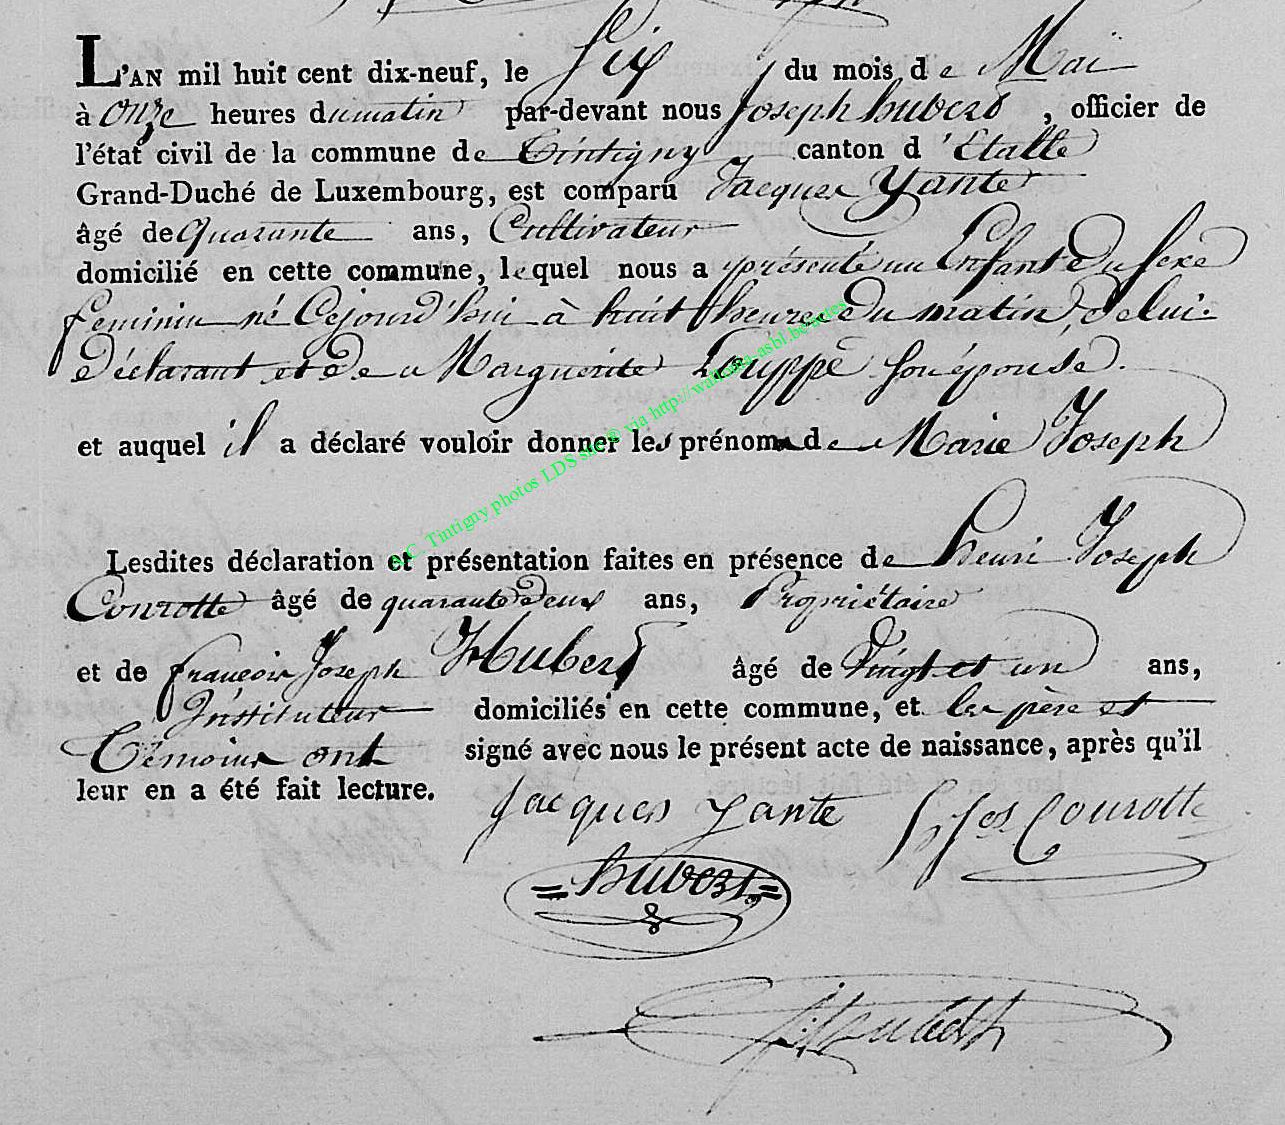 L'AN mil huit cent dix-neuf, le Six du mois de Mai
à onze heures du matin par-devant nous Joseph hubert , officier de
l'état civil de la commune de Tintigny canton d'Etalle
Grand-Duché de Luxembourg, est comparu Jacques Yante
âgé de Quarante ans, Cultivateur
domicilié en cette commune, lequel nous a présenté un Enfant du sexe
feminin né Cejourd'hui à huit heures du matin, de lui
déclarant et de Marguerite Louppe son épouse.
et auquel il a déclaré vouloir donner les prénoms de Marie Joseph
Lesdites déclaration et présentation faites en présence de henri Joseph
Courotte âgé de quarante deux ans, Propriétaire
et de françois Joseph Hubert âgé de Vingt et un ans,
Instituteur domiciliés en cette commune, et les père et
Témoins ont signé avec nous le présent acte de naissance, après qu'il
leur en a été fait lecture.
Jacques Yante hjos Courotte
=hubert=
A.C. Tintigny photos LDS site ® via http://wallonia-asbl.be/actes